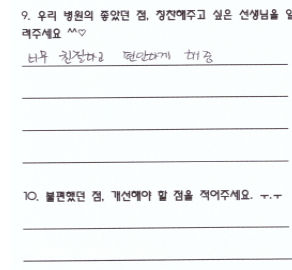 9. 우리 병원의 좋았던 점, 칭찬해주고 싶은 선생님을
려주세요 ^^♡
너무 친절하고 편안하게 해줌
10. 불편했던 점, 개선해야 할 점을 적어주세요. ㅜ.ㅜ